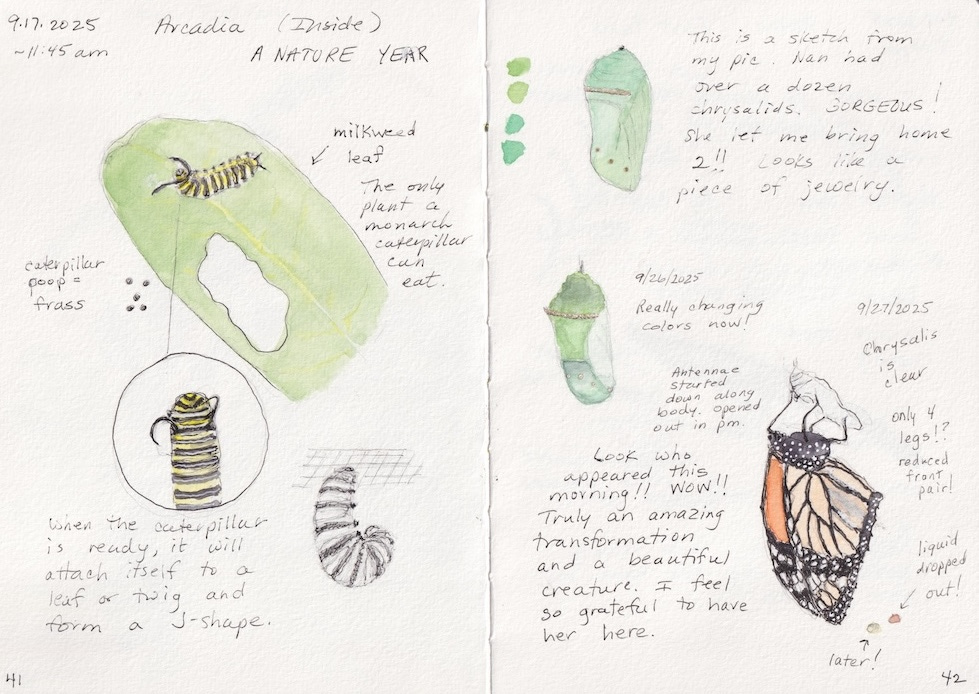 9.17.2025
~11:45 am
Arcadia (Inside)
A NATURE YEAR
milkweed
leaf
The only
plant a
monarch
caterpillar
can
eat.
caterpillar
poop =
frass
When the caterpillar
is ready, it will
attach itself to a
leaf or twig and
form a J-shape.
41
This is a sketch from
my pic. Nan had
over a dozen
chrysalids. GORGEOUS!
She let me bring home
2!! Looks like a
piece of jewelry.
9/26/2025
Really changing
colors now!
9/27/2025
Chrysalis
is
clear
Antennae
started
down along
body. opened
out in pm.
only 4
legs!?
reduced
front
pair!
Look who
appeared this
morning!! WOW!!
Truly an amazing
transformation
and a beautiful
creature. I feel
so grateful to have
her here.
liquid
dropped
out!
later!
42